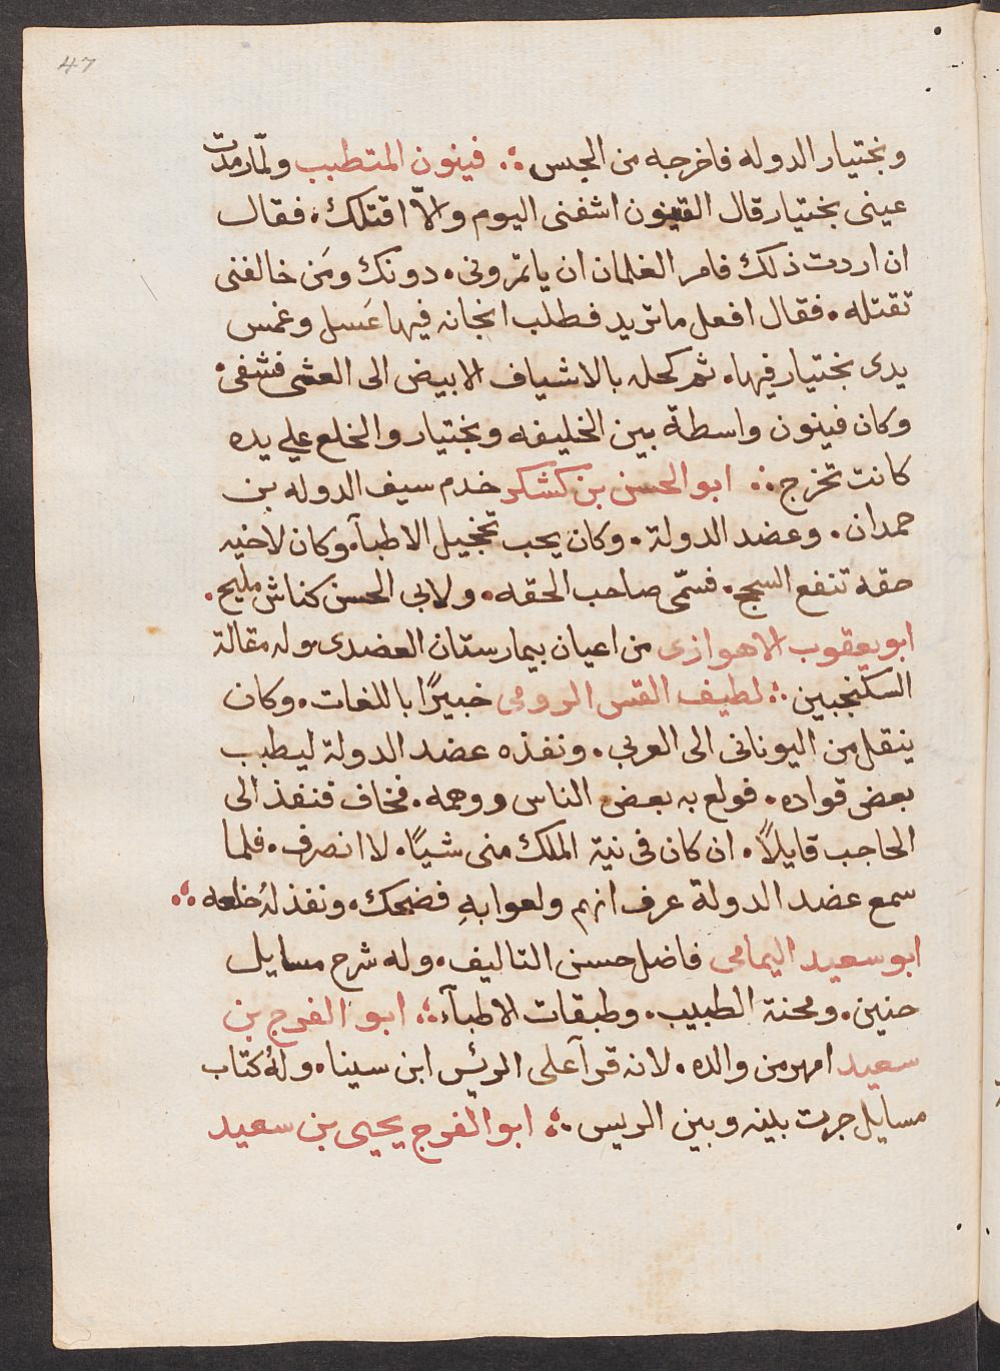 47
وبختيار الدوله فاخرجه من الحبس ؞ فينون المتطبب ولمّا رمدت
عينى بختيار قال القينون اشفنى اليوم والاّ اقتلك . فقال
ان اردت ذلك فامر الغلمان ان ياتمرونى . دونك ومَن خالفنى
تقتله . فقال افعل ما تريد فطلب انجانه فيها عَسل وغمس
يدى بختيار فيها . ثم كحله بالاشياف الابيض الى العشى فشفى .
وكان فينون واسطة بين الخليفه وبختيار والخلع علي يده
كانت تخرج ؞ ابو الحسن بن كشكر خدم سيف الدوله بن
حمدان . وعضد الدولة . وكان يحب تخجيل الاطبآء وكان لاخيه
حقه تنفع السجج . فسمّى صاحب الحقه . ولابى الحسن كناش مليح .
ابو يعقوب الاهوازى من اعيان بيمارستان العضدى وله مقالة
السكنجبين ؞ لطيف القس الرومى خبيرًا باللغات . وكان
ينقل من اليونانى الى العربى . ونفذه عضد الدولة ليطبب
بعض قواده . فولع به بعض الناس ووهمه . فخاف فنفذ الى
الحاجب قايلاً . ان كان فى نية الملك منى شيًا . لا انصرف . فلما
سمع عضد الدولة عرف انهم ولعوا بهِ فضحك . ونفذ لهُ خلعه ؞
ابو سعيد اليمامى فاضل حسن التاليف . وله شرح مسايل
حنين . ومحنة الطبيب . وطبقات الاطبآء ؞ ابو الفرج بن
سعيد امهر من والده . لانه قرآ على الرئس ابن سينا . ولهُ كتاب
مسايل جرت بينه وبين الريس ؞ ابو الفرج يحيى بن سعيد